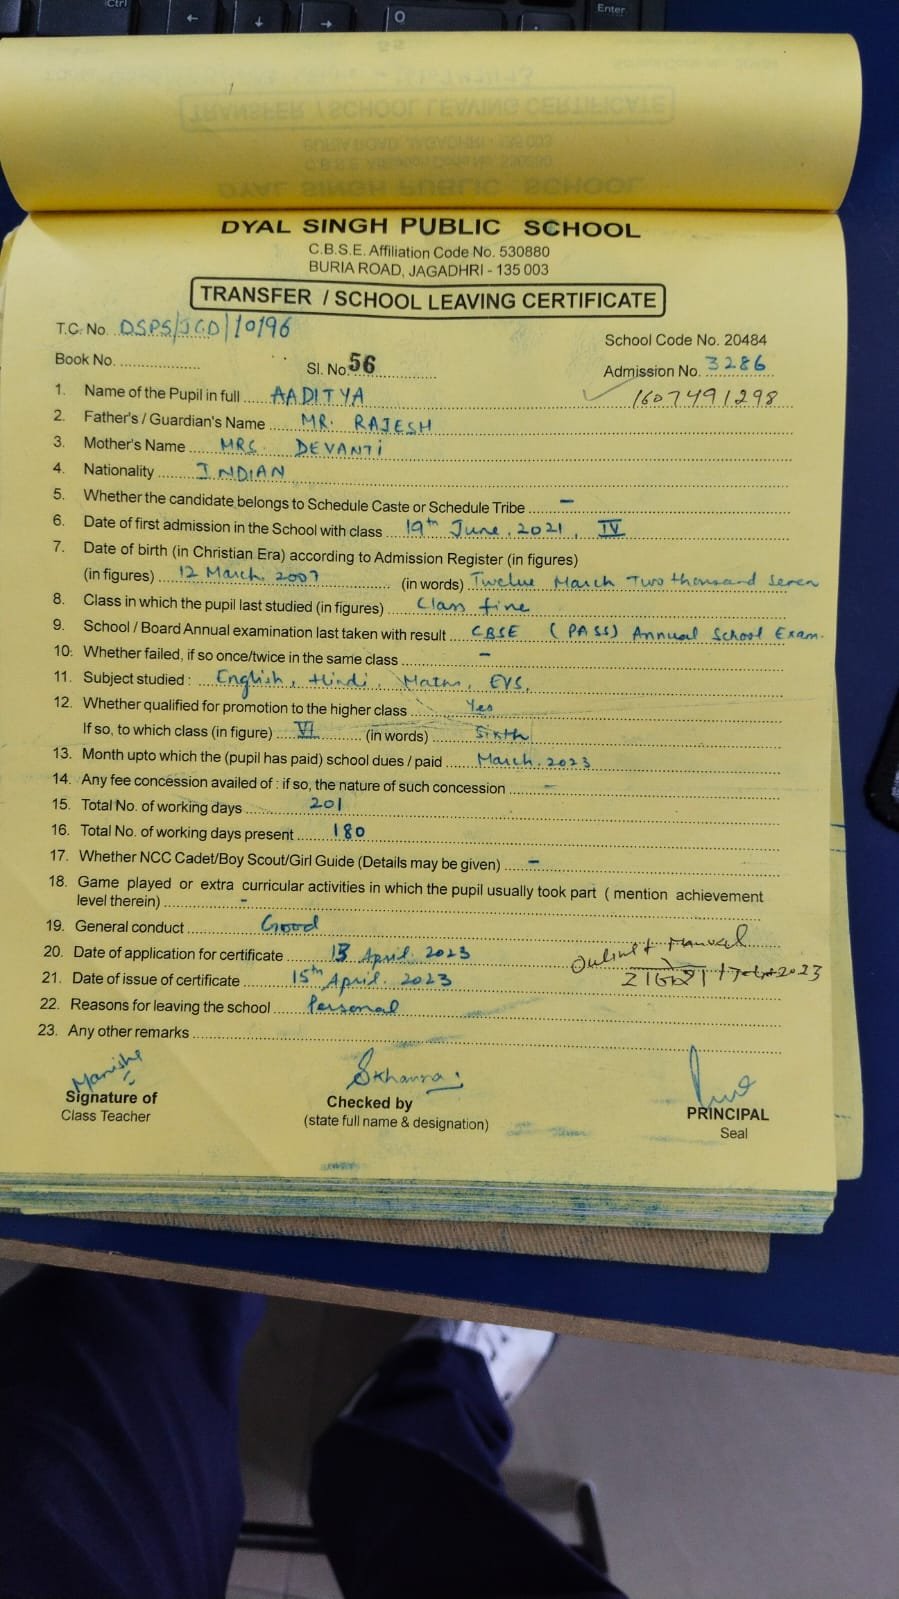 Ctrl
Enter
DYAL SINGH PUBLIC SCHOOL
C.B.S.E. Affiliation Code No. 530880
BURIA ROAD, JAGADHRI - 135 003
TRANSFER / SCHOOL LEAVING CERTIFICATE
T.C. No. DSPS/JGD/10196
School Code No. 20484
Book No. Sl. No. 56 Admission No. 3286
1607491298
1. Name of the Pupil in full AADITYA
2. Father's / Guardian's Name MR. RAJESH
3. Mother's Name MRS. DEVANTI
4. Nationality INDIAN
5. Whether the candidate belongs to Schedule Caste or Schedule Tribe –
6. Date of first admission in the School with class 19th June, 2021, IV
7. Date of birth (in Christian Era) according to Admission Register (in figures)
(in figures) 12 March, 2007 (in words) Twelve March Two thousand Seven
8. Class in which the pupil last studied (in figures) Class five
9. School / Board Annual examination last taken with result CBSE (PASS) Annual School Exam.
10. Whether failed, if so once/twice in the same class –
11. Subject studied : English, Hindi, Maths, EVS,
12. Whether qualified for promotion to the higher class Yes
If so, to which class (in figure) VI (in words) Sixth
13. Month upto which the (pupil has paid) school dues / paid March, 2023
14. Any fee concession availed of : if so, the nature of such concession –
15. Total No. of working days 201
16. Total No. of working days present 180
17. Whether NCC Cadet/Boy Scout/Girl Guide (Details may be given) –
18. Game played or extra curricular activities in which the pupil usually took part ( mention achievement
level therein) -
19. General conduct Good
20. Date of application for certificate 13 April, 2023
21. Date of issue of certificate 15th April, 2023
22. Reasons for leaving the school Personal
23. Any other remarks
Manisha
SKhanna
Signature of
Class Teacher
Checked by
(state full name & designation)
PRINCIPAL
Seal